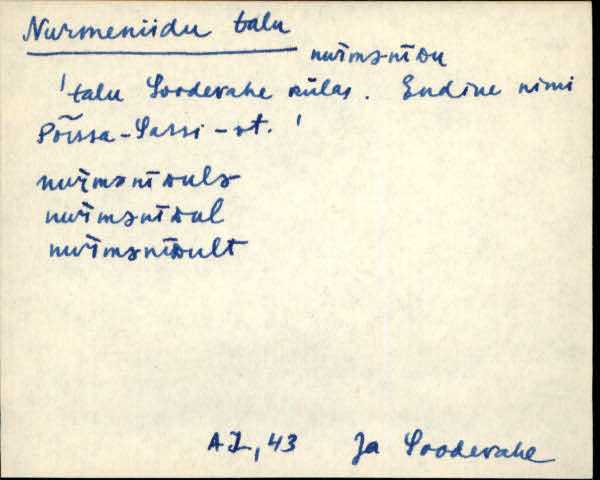 Nurmeniidu talu
nur̆mənīᴅu
'talu Soodevahe külas. Endine nimi
Põissa-Sassi-vt.'
nur̆mənīᴅulə
nur̆mənīᴅul
nur̆mənīᴅult
AL, 43 Ja Soodevahe